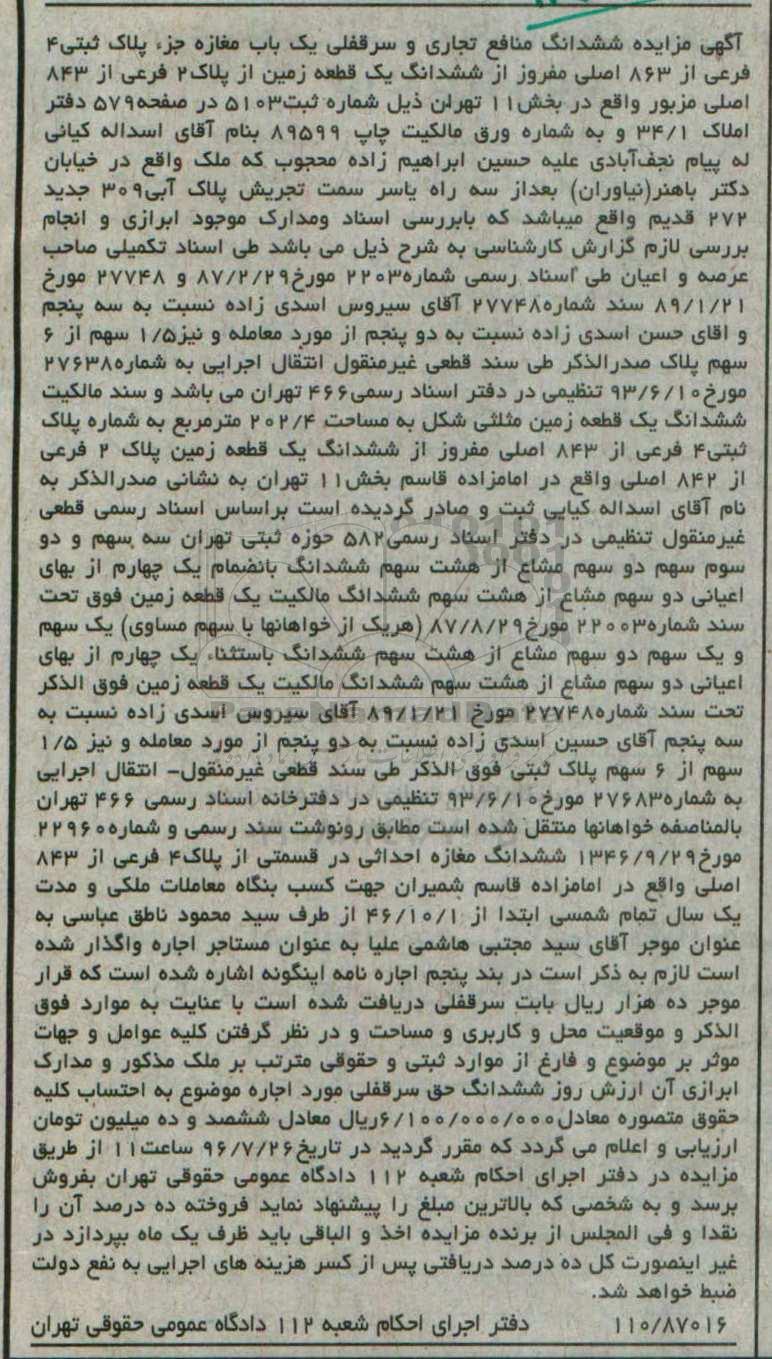 آگهی مزایده ششدانگ منافع تجاری و سرقفلی یک باب مغازه جزء پلاک ثبتی۴
فرعی از ۸۶۳ اصلی مفروز از ششدانگ یک قطعه زمین از پلاک۲ فرعی از ۸۴۳
اصلی مزبور واقع در بخش۱۱ تهران ذیل شماره ثبت۵۱۰۳ در صفحه۵۷۹ دفتر
املاک ۳۴/۱ و به شماره ورق مالکیت چاپ ۸۹۵۹۹ بنام آقای اسداله کیانی
له پیام نجف‌آبادی علیه حسین ابراهیم زاده محجوب که ملک واقع در خیابان
دکتر باهنر(نیاوران) بعداز سه راه یاسر سمت تجریش پلاک آبی۳۰۹ جدید
۲۷۲ قدیم واقع میباشد که بابررسی اسناد ومدارک موجود ابرازی و انجام
بررسی لازم گزارش کارشناسی به شرح ذیل می باشد طی اسناد تکمیلی صاحب
عرصه و اعیان طی اسناد رسمی شماره۲۲۰۳ مورخ۸۷/۲/۲۹ و ۲۷۷۴۸ مورخ
۸۹/۱/۲۱ سند شماره۲۷۷۴۸ آقای سیروس اسدی زاده نسبت به سه پنجم
و اقای حسن اسدی زاده نسبت به دو پنجم از مورد معامله و نیز۱/۵ سهم از ۶
سهم پلاک صدرالذکر طی سند قطعی غیرمنقول انتقال اجرایی به شماره۲۷۶۳۸
مورخ۹۳/۶/۱۰ تنظیمی در دفتر اسناد رسمی۴۶۶ تهران می باشد و سند مالکیت
ششدانگ یک قطعه زمین مثلثی شکل به مساحت ۲۰۲/۴ مترمربع به شماره پلاک
ثبتی۴ فرعی از ۸۴۳ اصلی مفروز از ششدانگ یک قطعه زمین پلاک ۲ فرعی
از ۸۴۲ اصلی واقع در امامزاده قاسم بخش۱۱ تهران به نشانی صدرالذکر به
نام آقای اسداله کیایی ثبت و صادر گردیده است براساس اسناد رسمی قطعی
غیرمنقول تنظیمی در دفتر اسناد رسمی۵۸۲ حوزه ثبتی تهران سه سهم و دو
سوم سهم دو سهم مشاع از هشت سهم ششدانگ بانضمام یک چهارم از بهای
اعیانی دو سهم مشاع از هشت سهم ششدانگ مالکیت یک قطعه زمین فوق تحت
سند شماره۲۲۰۰۳ مورخ۸۷/۸/۲۹ (هریک از خواهانها با سهم مساوی) یک سهم
و یک سهم دو سهم مشاع از هشت سهم ششدانگ باستثناء یک چهارم از بهای
اعیانی دو سهم مشاع از هشت سهم ششدانگ مالکیت یک قطعه زمین فوق الذکر
تحت سند شماره۲۷۷۴۸ مورخ ۸۹/۱/۲۱ آقای سیروس اسدی زاده نسبت به
سه پنجم آقای حسین اسدی زاده نسبت به دو پنجم از مورد معامله و نیز ۱/۵
سهم از ۶ سهم پلاک ثبتی فوق الذکر طی سند قطعی غیرمنقول- انتقال اجرایی
به شماره۲۷۶۸۳ مورخ۹۳/۶/۱۰ تنظیمی در دفترخانه اسناد رسمی ۴۶۶ تهران
بالمناصفه خواهانها منتقل شده است مطابق رونوشت سند رسمی و شماره۲۲۹۶۰
مورخ۱۳۴۶/۹/۲۹ ششدانگ مغازه احداثی در قسمتی از پلاک۴ فرعی از ۸۴۳
اصلی واقع در امامزاده قاسم شمیران جهت کسب بنگاه معاملات ملکی و مدت
یک سال تمام شمسی ابتدا از ۴۶/۱۰/۱ از طرف سید محمود ناطق عباسی به
عنوان موجر آقای سید مجتبی هاشمی علیا به عنوان مستاجر اجاره واگذار شده
است لازم به ذکر است در بند پنجم اجاره نامه اینگونه اشاره شده است که قرار
موجر ده هزار ریال بابت سرقفلی دریافت شده است با عنایت به موارد فوق
الذکر و موقعیت محل و کاربری و مساحت و در نظر گرفتن کلیه عوامل و جهات
موثر بر موضوع و فارغ از موارد ثبتی و حقوقی مترتب بر ملک مذکور و مدارک
ابرازی آن ارزش روز ششدانگ حق سرقفلی مورد اجاره موضوع به احتساب کلیه
حقوق متصوره معادل۶/۱۰۰/۰۰۰/۰۰۰ریال معادل ششصد و ده میلیون تومان
ارزیابی و اعلام می گردد که مقرر گردید در تاریخ۹۶/۷/۲۶ ساعت۱۱ از طریق
مزایده در دفتر اجرای احکام شعبه ۱۱۲ دادگاه عمومی حقوقی تهران بفروش
برسد و به شخصی که بالاترین مبلغ را پیشنهاد نماید فروخته ده درصد آن را
نقدا و فی المجلس از برنده مزایده اخذ و الباقی باید ظرف یک ماه بپردازد در
غیر اینصورت کل ده درصد دریافتی پس از کسر هزینه های اجرایی به نفع دولت
ضبط خواهد شد.
۱۱۰/۸۷۰۱۶ دفتر اجرای احکام شعبه ۱۱۲ دادگاه عمومی حقوقی تهران